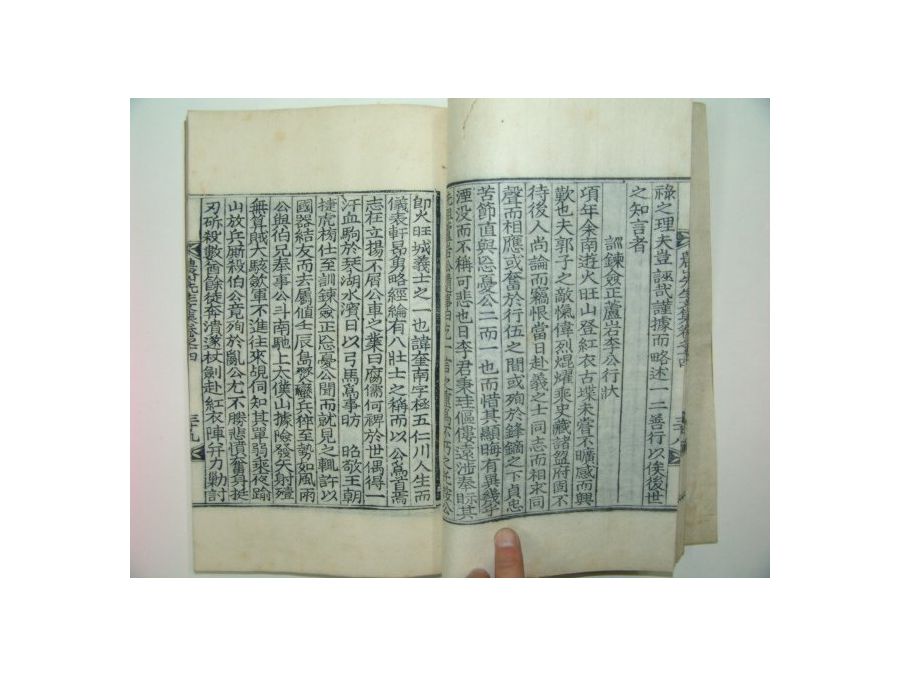 祿之理夫豈誣哉謹據而略述一二善行以俟後世
之知言者
訓鍊僉正蘆岩李公行狀
項年余南遊火旺山登紅衣古堞未嘗不曠感而興
歎也夫郭子之敵愾偉烈焜燿乘史藏諸盟府固不
待後人尚論而竊恨當日赴義之士同志而相求同
聲而相應或奮於行伍之間或殉於鋒鏑之下貞忠
苦節直與忘憂公二而一也而惜其顯晦有異幾乎
湮没而不稱可悲也日李君秉珪傴僂遠涉奉眎其
即火旺城義士之一也諱奎南字極五仁川人生而
儀表軒昂勇略經綸有八壯士之稱而以公爲首焉
志在立揚不屑公車之業曰腐儒何裨於世偶得一
汗血駒於琹湖水濱日以弓馬爲事昉 昭敬王朝
捷虎榜仕至訓鍊僉正忘憂公聞而就見之輒許以
國器結友而去屬値壬辰島
公與伯兄奉事公斗南馳上太僕山據險發矢射殪
無算賊大駭斂軍不進往來覘伺知其單弱乘夜踰
山放兵厮殺伯公竟殉於亂公尤不勝悲憤奮身挺
刃斫殺數酋餘徒奔潰遂杖劍赴紅衣陣幷力勦討